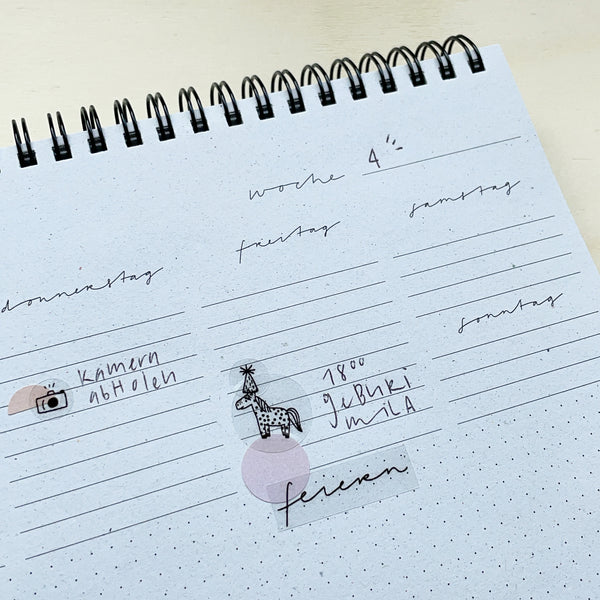 woche 4
donnerstag
kamera
abHolen
freitag
18⁰⁰
geBURi
MILA
feiern
samstag
sonntag